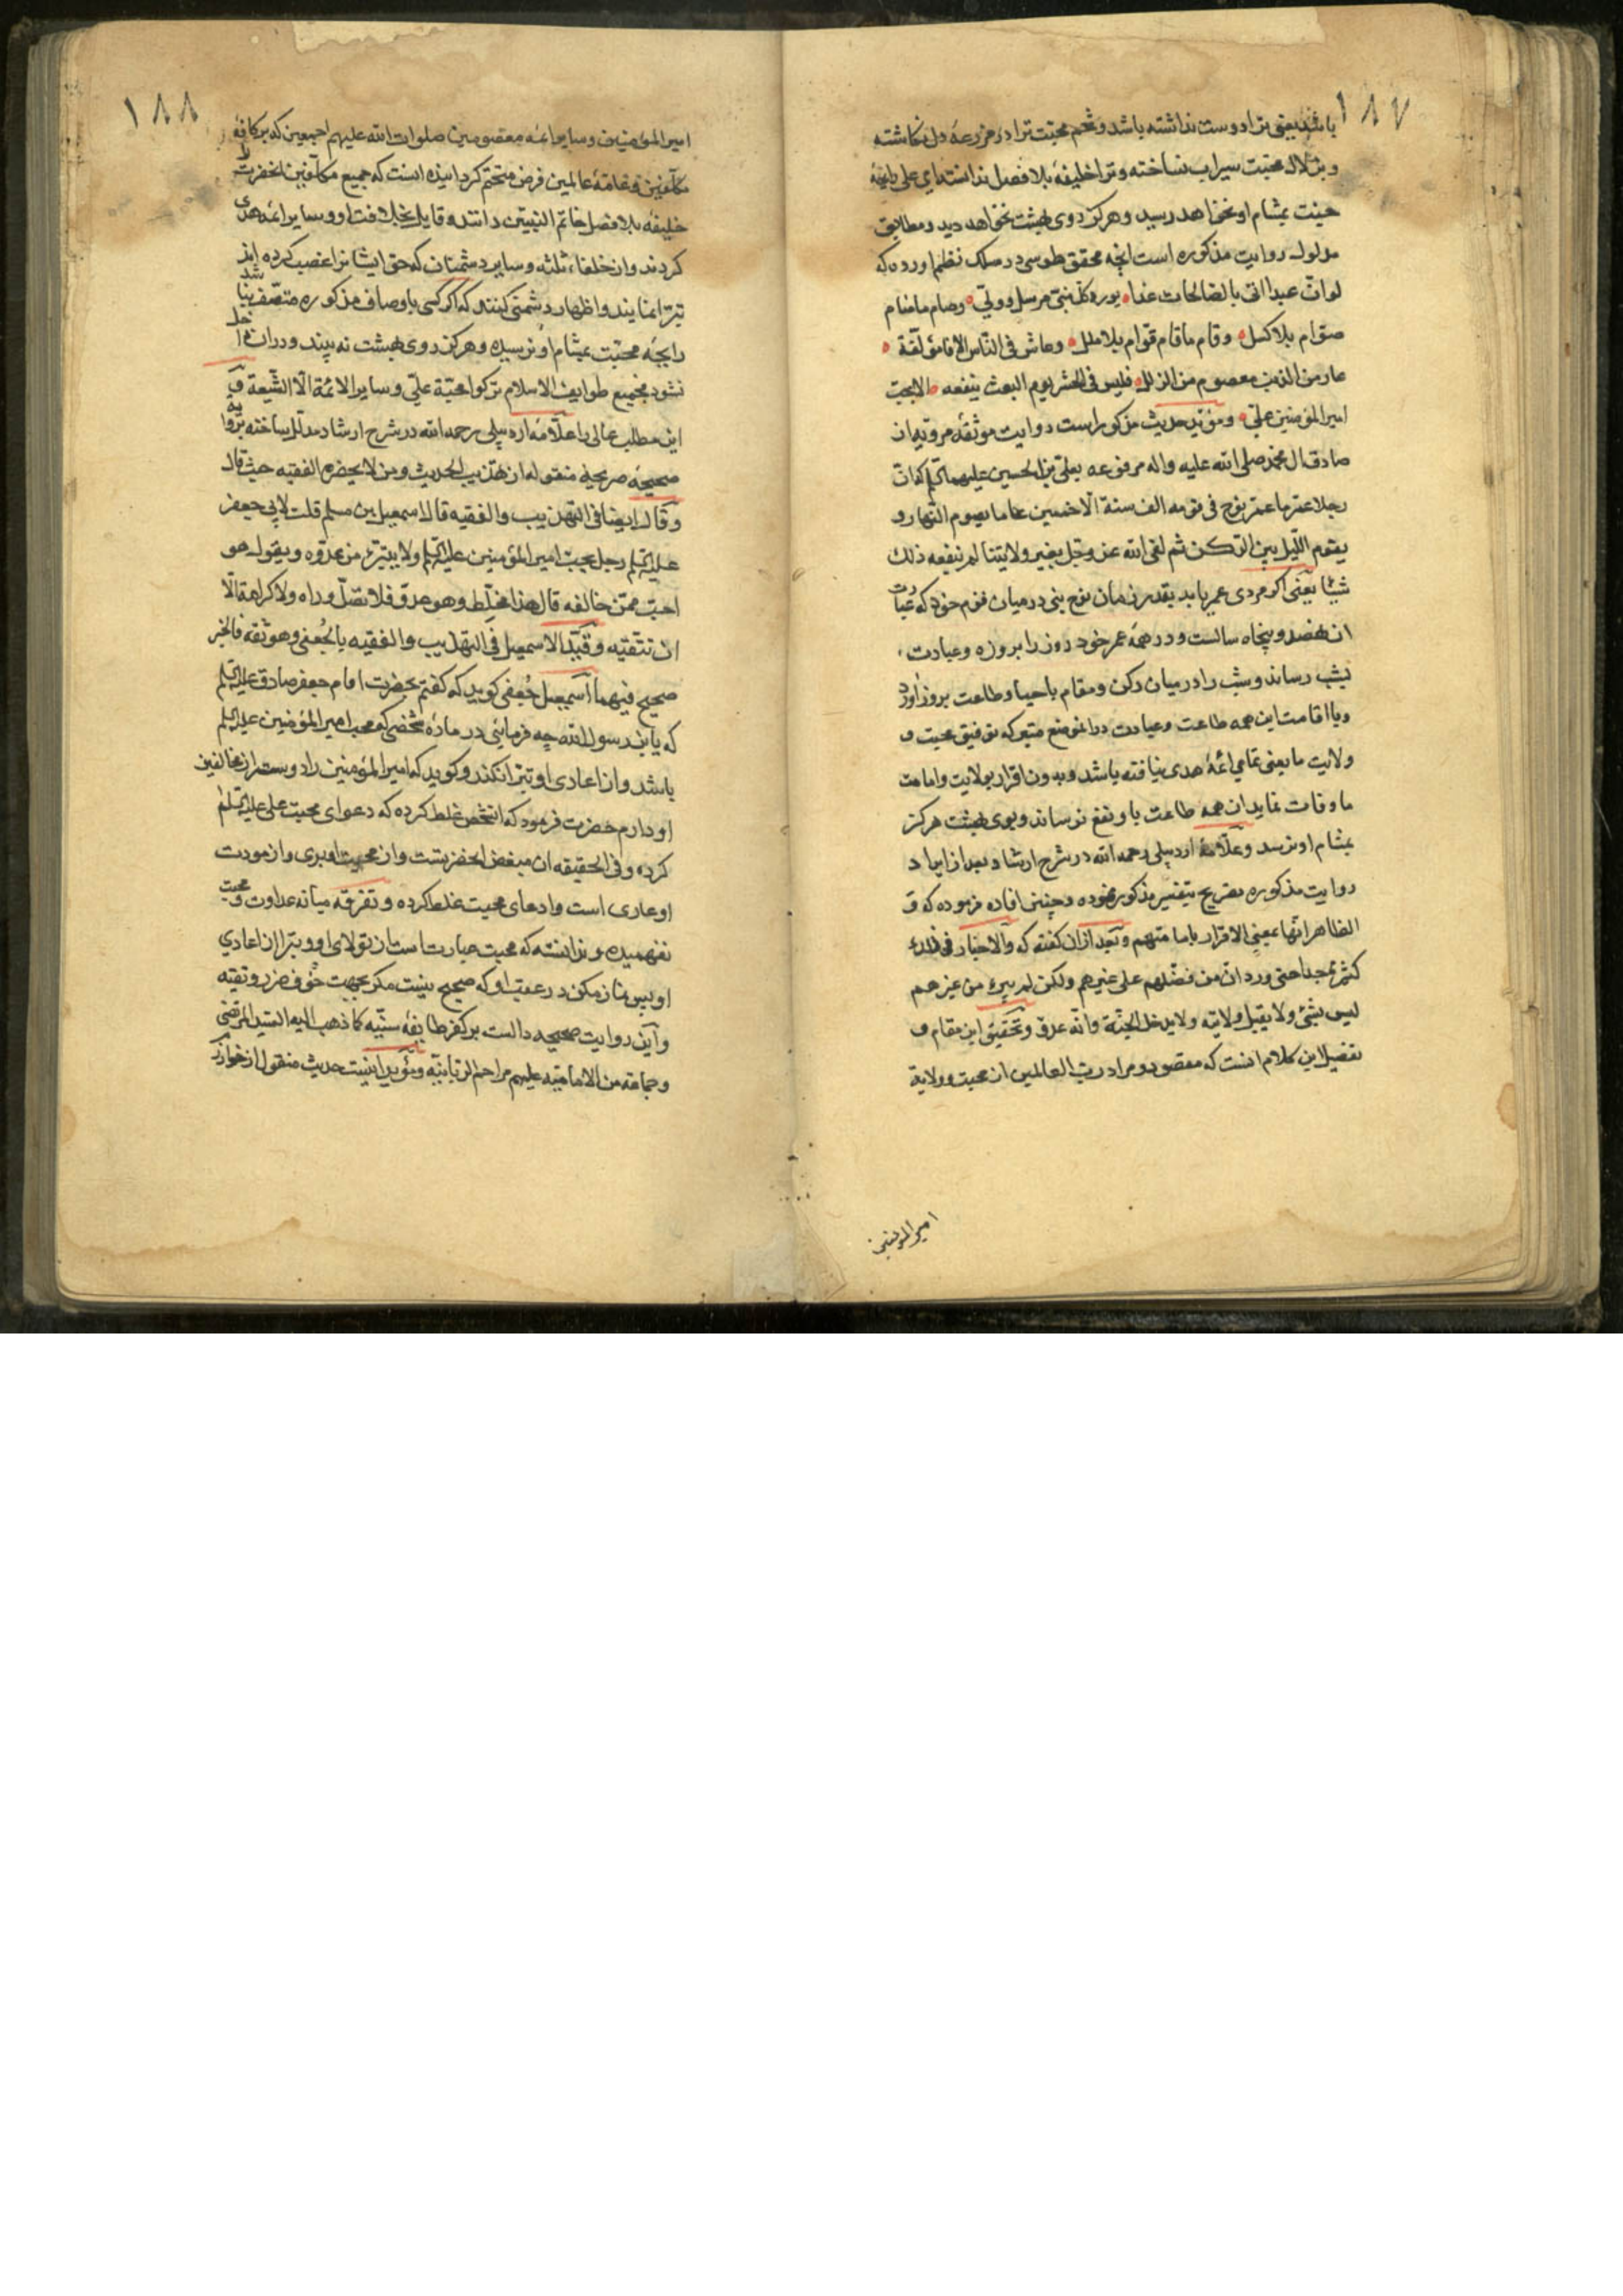 ۱۸۷
باشد یعنی ترا دوست نداشته باشد و تخم محبت ترا در مزرعهٔ دل نکاشته
و بزلال محبت سیراب نساخته و ترا خلیفهٔ بلا فصل ندانسته ای علی رایحهٔ
جنت بمشام او نخواهد رسید و هرکز روی بهشت نخواهد دید و مطابق
مدلول روایت مذکوره است انچه محقق طوسی در سلک نظم اورده که
لو ان عبدا اتی بالصالحات غدا ه یود کل نبی مرسل و ولی ه و صام ما صام
صوام بلا کسل ه و قام ما قام قوام بلا ملل ه و عاش فی الناس الافا مؤلفة ه
عار من الذنب معصوم من الزلل ه فلیس فی الحشر یوم البعث ینفعه ه الا بحب
امیر المؤمنین علی ه و مؤید حدیث مذکور است روایت موثقه مرویه از
صادق ال محمد صلی الله علیه واله مرفوعه بعلی بن الحسین علیهما السلم که ان
رجلا عمر ما عمر نوح فی قومه الف سنة الا خمسین عاما یصوم النهار و
یقوم اللیل بین الرکن ثم لقی الله عز وجل بغیر ولایتنا لم ینفعه ذلک
شیئا یعنی اکر مردی عمر یابد بقدر زمان نوح نبی در میان قوم خود که عبارت
از نهصد و پنجاه سالست و در همهٔ عمر خود روز را بروزه و عبادت
بشب رساند و شب را در میان رکن و مقام باحیا و طاعت بروز اورد
و با اقامت این همه طاعت و عبادت در انموضع متبرکه توفیق محبت و
ولایت ما یعنی تمامی ائمهٔ هدی نیافته باشد و بدون اقرار بولایت و امامت
ما وفات نماید ان همه طاعت باو نفع نرساند و بوی بهشت هرکز
بمشام او نرسد و علامهٔ اردبیلی رحمه الله در شرح ارشاد بعد از ایراد
روایت مذکوره تصریح بتفسیر مذکوره نموده و چنین افاده فرموده که و
الظاهر انها بمعنی الاقرار بامامتهم و بعد ازان کفته که والاخبار فی ذلک
کثیرة جدا حتی ورد ان من فضلهم علی غیرهم ولکن لم یبرء من غیرهم
لیس بشیٔ ولا یقبل ولایته ولا یدخل الجنة وانه عدو و تحقیق این مقام و
تفصیل این کلام انست که مقصود و مراد رب العالمین از محبت و ولایة
امیر المؤمنین
۱۸۸
امیر المؤمنین و سایر ائمه معصومین صلوات الله علیهم اجمعین که بر کافهٔ
مکلفین و عامهٔ عالمین فرض متحتم کردانیده انست که جمیع مکلفین انحضرت را
خلیفهٔ بلا فصل خاتم النبیین دانند و قایل بخلافت او و سایر ائمهٔ هدی
کردند و از خلفاء ثلثه و سایر دشمنان که حق ایشانرا غصب کرده اند
تبرا نمایند و اظهار دشمنی کنند که اکر کسی باوصاف مذکوره متصف نباشد
رایحهٔ محبت بمشام او نرسیده و هرکز روی بهشت نه بیند و دران داخل
نشود فجمیع طوایف الاسلام ترکوا محبة علی و سایر الائمة الا الشیعة و
این مطلب عالی را علامهٔ اردبیلی رحمه الله در شرح ارشاد مدلل ساخته بروایه
صحیحهٔ صریحهٔ منقوله از تهذیب الحدیث و من لا یحضره الفقیه حیث قال
و قال ایضا فی التهذیب والفقیه قال اسمعیل بن مسلم قلت لابی جعفر
علیه السلم رجل یحب امیر المؤمنین علیه السلم ولا یتبرء من عدوه ویقول هو
احب ممن خالفه قال هذا مخلط وهو عدو فلا تصل وراه ولا کرامة الا
ان تتقیه و قید الاسمعیل فی التهذیب والفقیه بالجعفی وهو ثقه فالخبر
صحیح فیهما اسمعیل جعفی کوید که کفتم بحضرت امام جعفر صادق علیه السلم
که یابن رسول الله چه فرمائی در مادهٔ شخصی که محب امیر المؤمنین علیه السلم
باشد و از اعادی او تبرا نکند و کوید که امیر المؤمنین را دوستر از مخالفین
او دارم حضرت فرمود که انشخص غلط کرده که دعوای محبت علی علیه السلم
کرده و فی الحقیقه ان مبغض انحضرتست و از محبت او بری و از مودت
او عاری است و ادعای محبت غلط کرده و تفرقه میانه عداوت و محبت
نفهمیده و ندانسته که محبت عبارتست از تولای او و تبرا از اعادی
او پس نماز مکن در عقب او که صحیح نیست مکر بجهت خوف ضرر و تقیه
و این روایت صحیحه دالست بر کفر طایفهٔ سنیه کما ذهب الیه السید المرتضی
و جماعة من الامامیة علیهم مراحم الربانیه و مؤید اینست حدیث منقول از